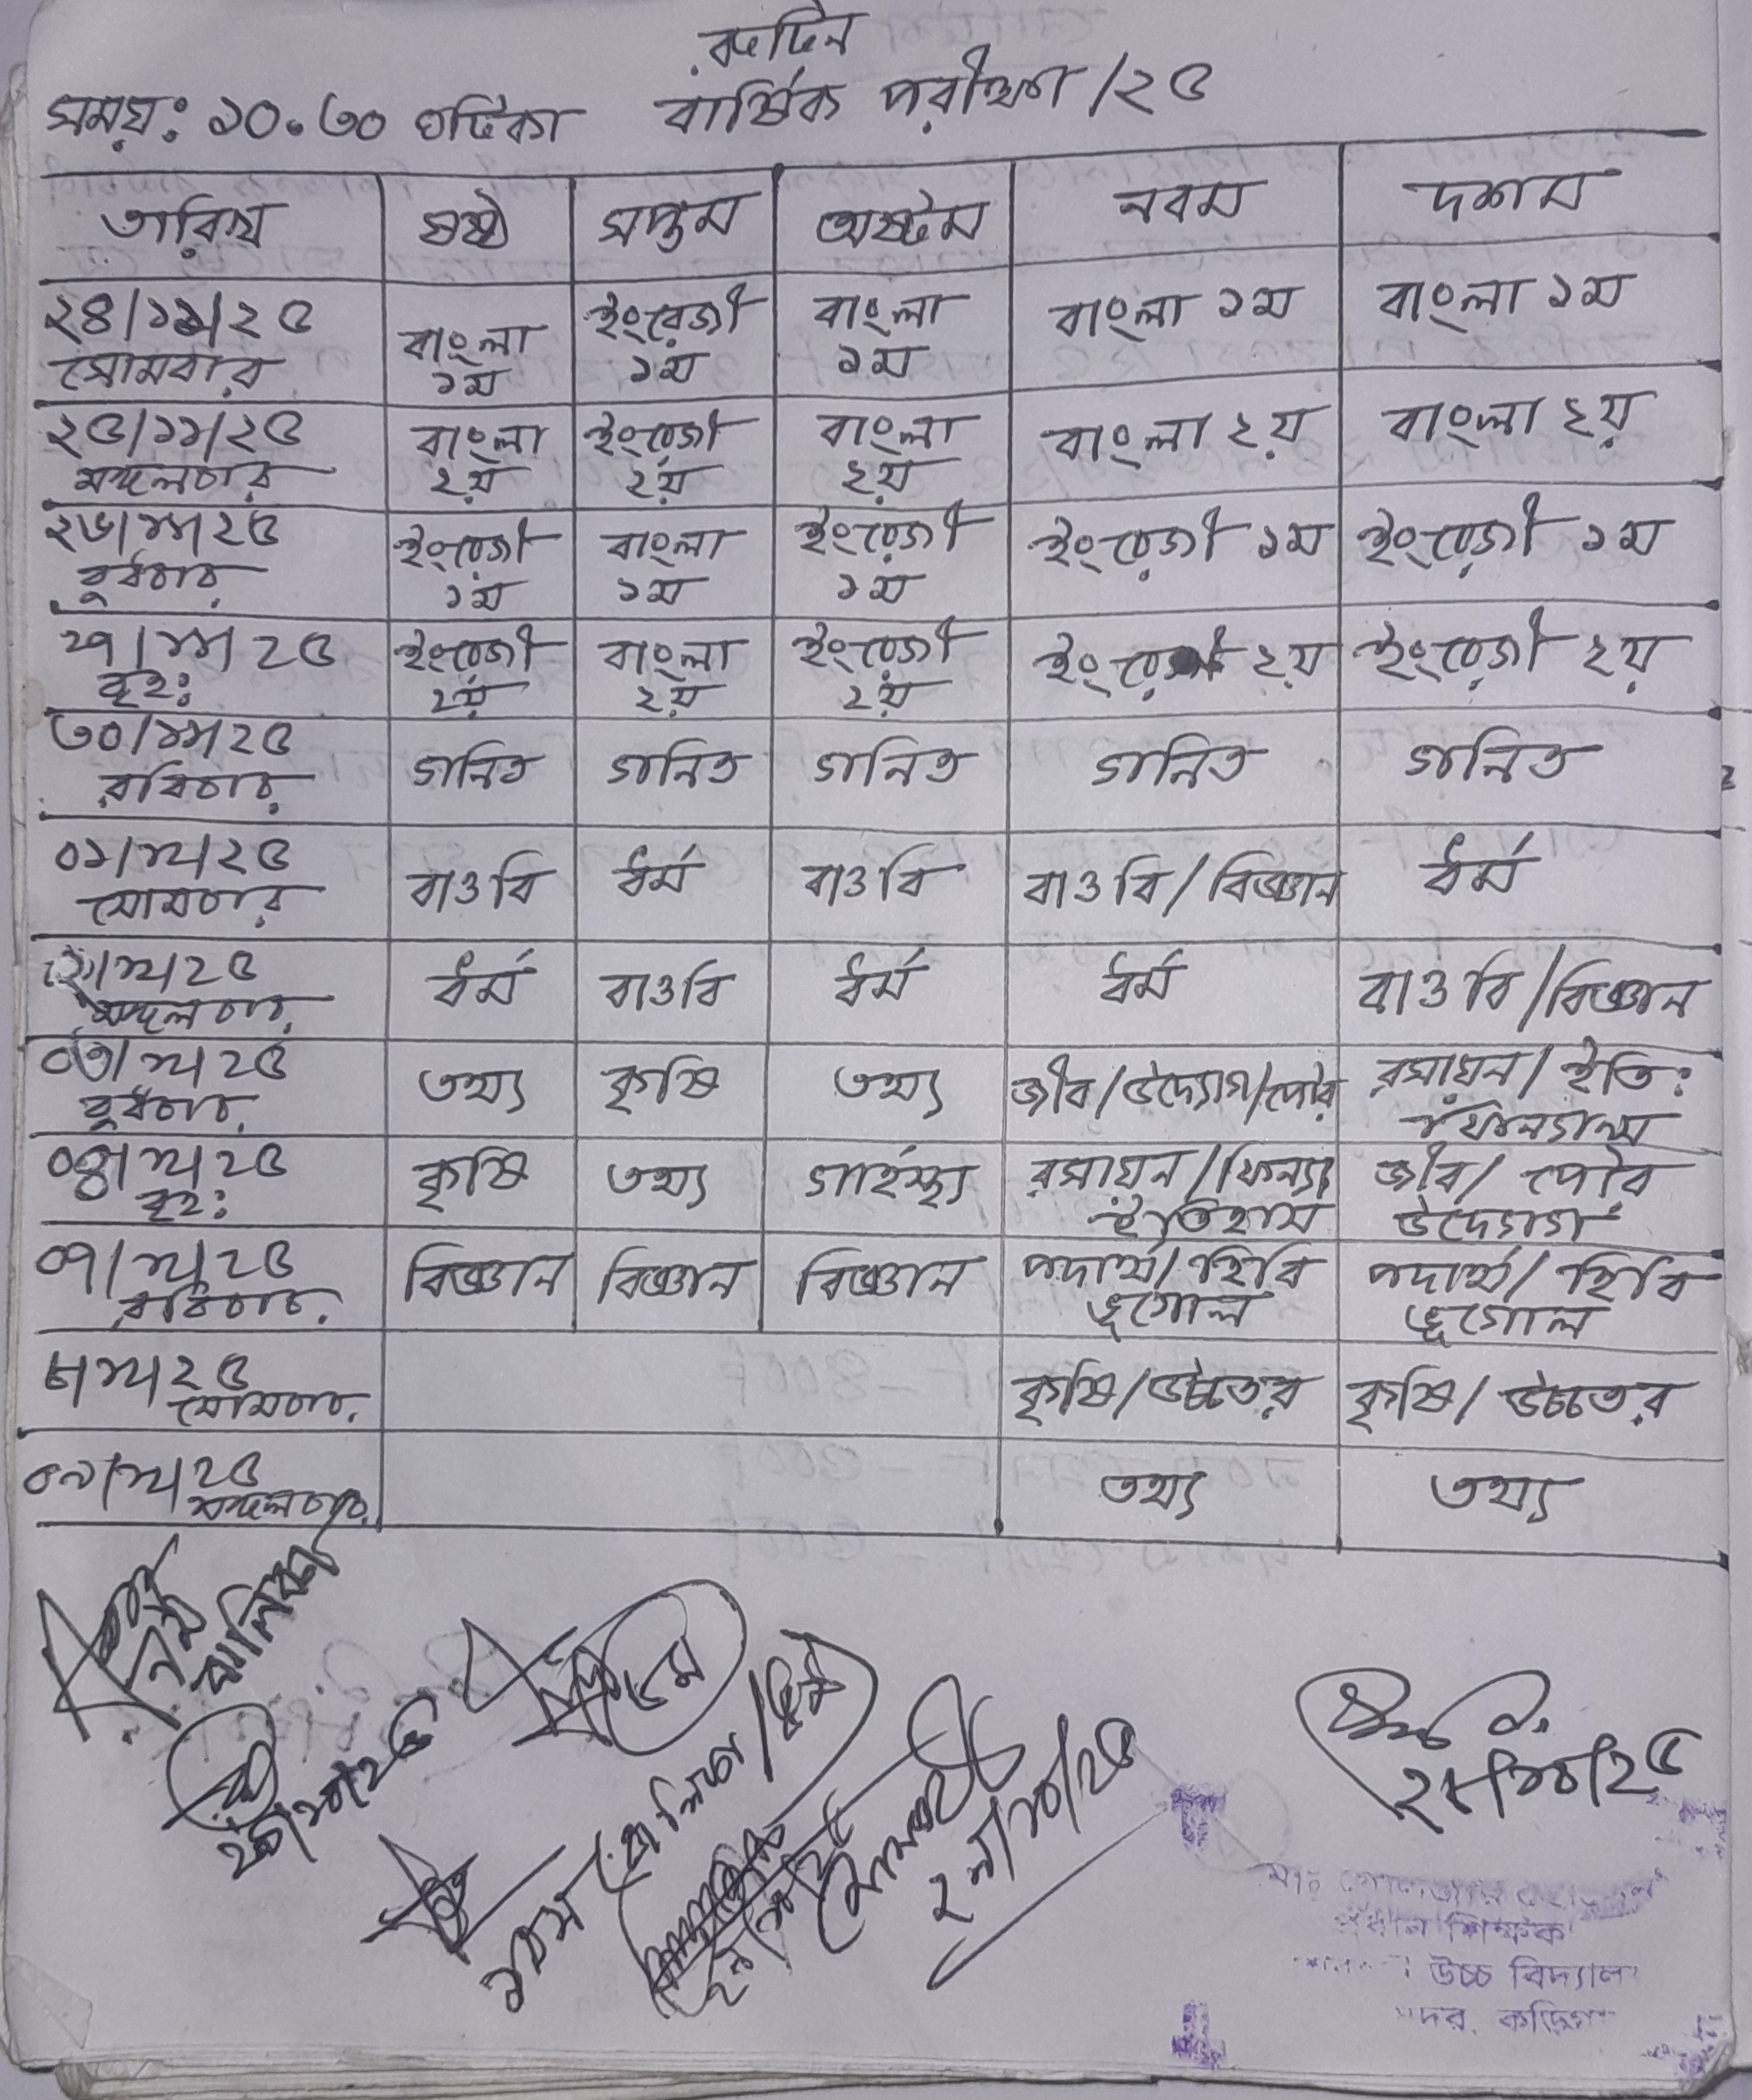 রুটিন
সময়: ১০.৩০ ঘটিকা বার্ষিক পরীক্ষা/২৫
তারিখ ষষ্ঠ সপ্তম অষ্টম নবম দশম
২৪/১১/২৫ সোমবার বাংলা ১ম ইংরেজী ১ম বাংলা ১ম বাংলা ১ম বাংলা ১ম
২৫/১১/২৫ মঙ্গলবার বাংলা ২য় ইংরেজী ২য় বাংলা ২য় বাংলা ২য় বাংলা ২য়
২৬/১১/২৫ বুধবার ইংরেজী ১ম বাংলা ১ম ইংরেজী ১ম ইংরেজী ১ম ইংরেজী ১ম
২৭/১১/২৫ বৃহ: ইংরেজী ২য় বাংলা ২য় ইংরেজী ২য় ইংরেজী ২য় ইংরেজী ২য়
৩০/১১/২৫ রবিবার গনিত গনিত গনিত গনিত গনিত
০১/১২/২৫ সোমবার বাওবি ধর্ম বাওবি বাওবি/বিজ্ঞান ধর্ম
০২/১২/২৫ মঙ্গলবার ধর্ম বাওবি ধর্ম ধর্ম বাওবি/বিজ্ঞান
০৩/১২/২৫ বুধবার তথ্য কৃষি তথ্য জীব/উদ্যোগ/পৌর রসায়ন/ইতি:
০৪/১২/২৫ বৃহ: কৃষি তথ্য গার্হস্থ্য রসায়ন/ফিন্যা ইতিহাস জীব/ পৌর উদ্যোগ
০৭/১২/২৫ রবিবার বিজ্ঞান বিজ্ঞান বিজ্ঞান পদার্থ/হিবি ভূগোল পদার্থ/হিবি ভূগোল
৮/১২/২৫ সোমবার কৃষি/উচ্চতর কৃষি/উচ্চতর
০৯/১২/২৫ মঙ্গলবার তথ্য তথ্য
২৯/১০/২৫
২৮/১০/২৫
প্রধান শিক্ষক
উচ্চ বিদ্যাল